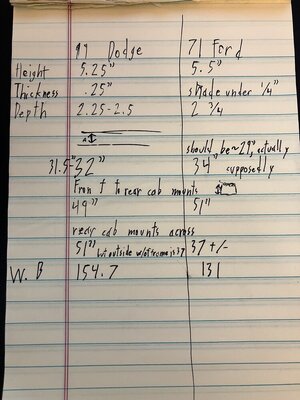 99 Dodge 71 Ford
Height 5.25" 5.5"
Thickness .25" shade under 1/4"
Depth 2.25-2.5 2 3/4
A
should be ~29", actually
31.5-32" 34" supposedly
Front to rear cab mounts
49" 51"
rear cab mounts across
51" but outside width of frame is 37 37 +/-
W.B 154.7 131